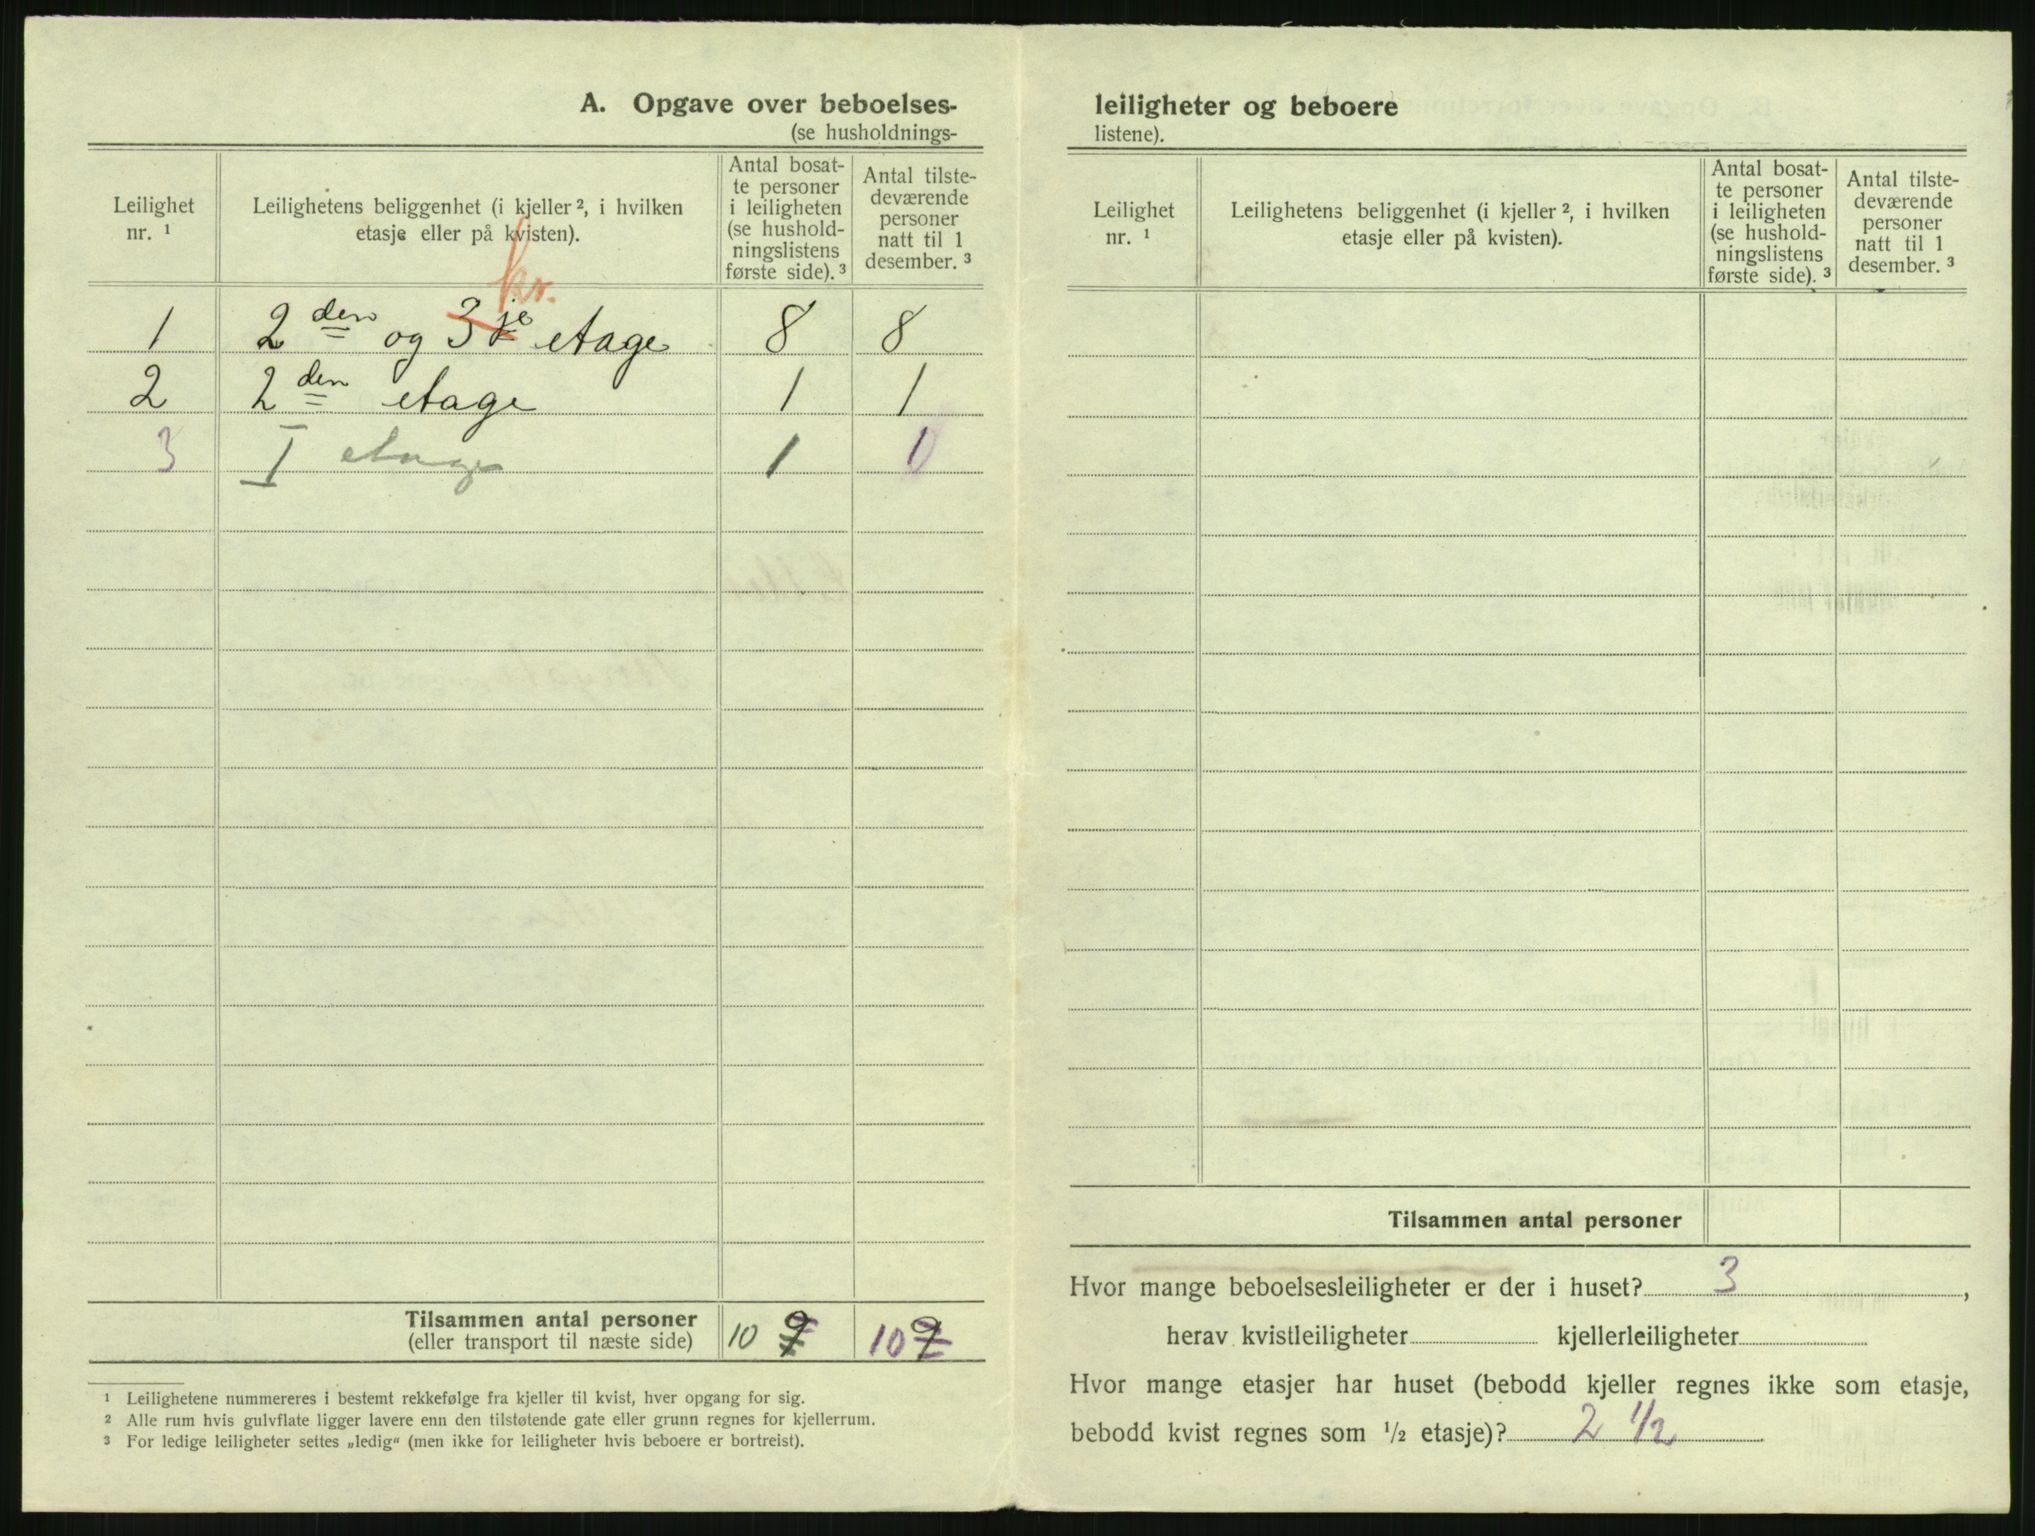 A. Opgave over beboelses-
(se husholdnings-
Leilighet
nr. ¹
Leilighetens beliggenhet (i kjeller ², i hvilken
etasje eller på kvisten).
Antal bosat-
te personer
i leiligheten
(se hushold-
ningslistens
første side). ³
Antal tilste-
deværende
personer
natt til 1
desember. ³
kv.
1 2den og 3je etage 8 8
2 2den etage 1 1
3 I etage 1 1
Tilsammen antal personer
(eller transport til næste side) 10 9 10 9
¹ Leilighetene nummereres i bestemt rekkefølge fra kjeller til kvist, hver opgang for sig.
² Alle rum hvis gulvflate ligger lavere enn den tilstøtende gate eller grunn regnes for kjellerrum.
³ For ledige leiligheter settes „ledig“ (men ikke for leiligheter hvis beboere er bortreist).
leiligheter og beboere
listene).
Leilighet
nr. ¹
Leilighetens beliggenhet (i kjeller ², i hvilken
etasje eller på kvisten).
Antal bosat-
te personer
i leiligheten
(se hushold-
ningslistens
første side). ³
Antal tilste-
deværende
personer
natt til 1
desember. ³
Tilsammen antal personer
Hvor mange beboelsesleiligheter er der i huset? 3,
herav kvistleiligheter kjellerleiligheter
Hvor mange etasjer har huset (bebodd kjeller regnes ikke som etasje,
bebodd kvist regnes som ½ etasje)? 2 ½